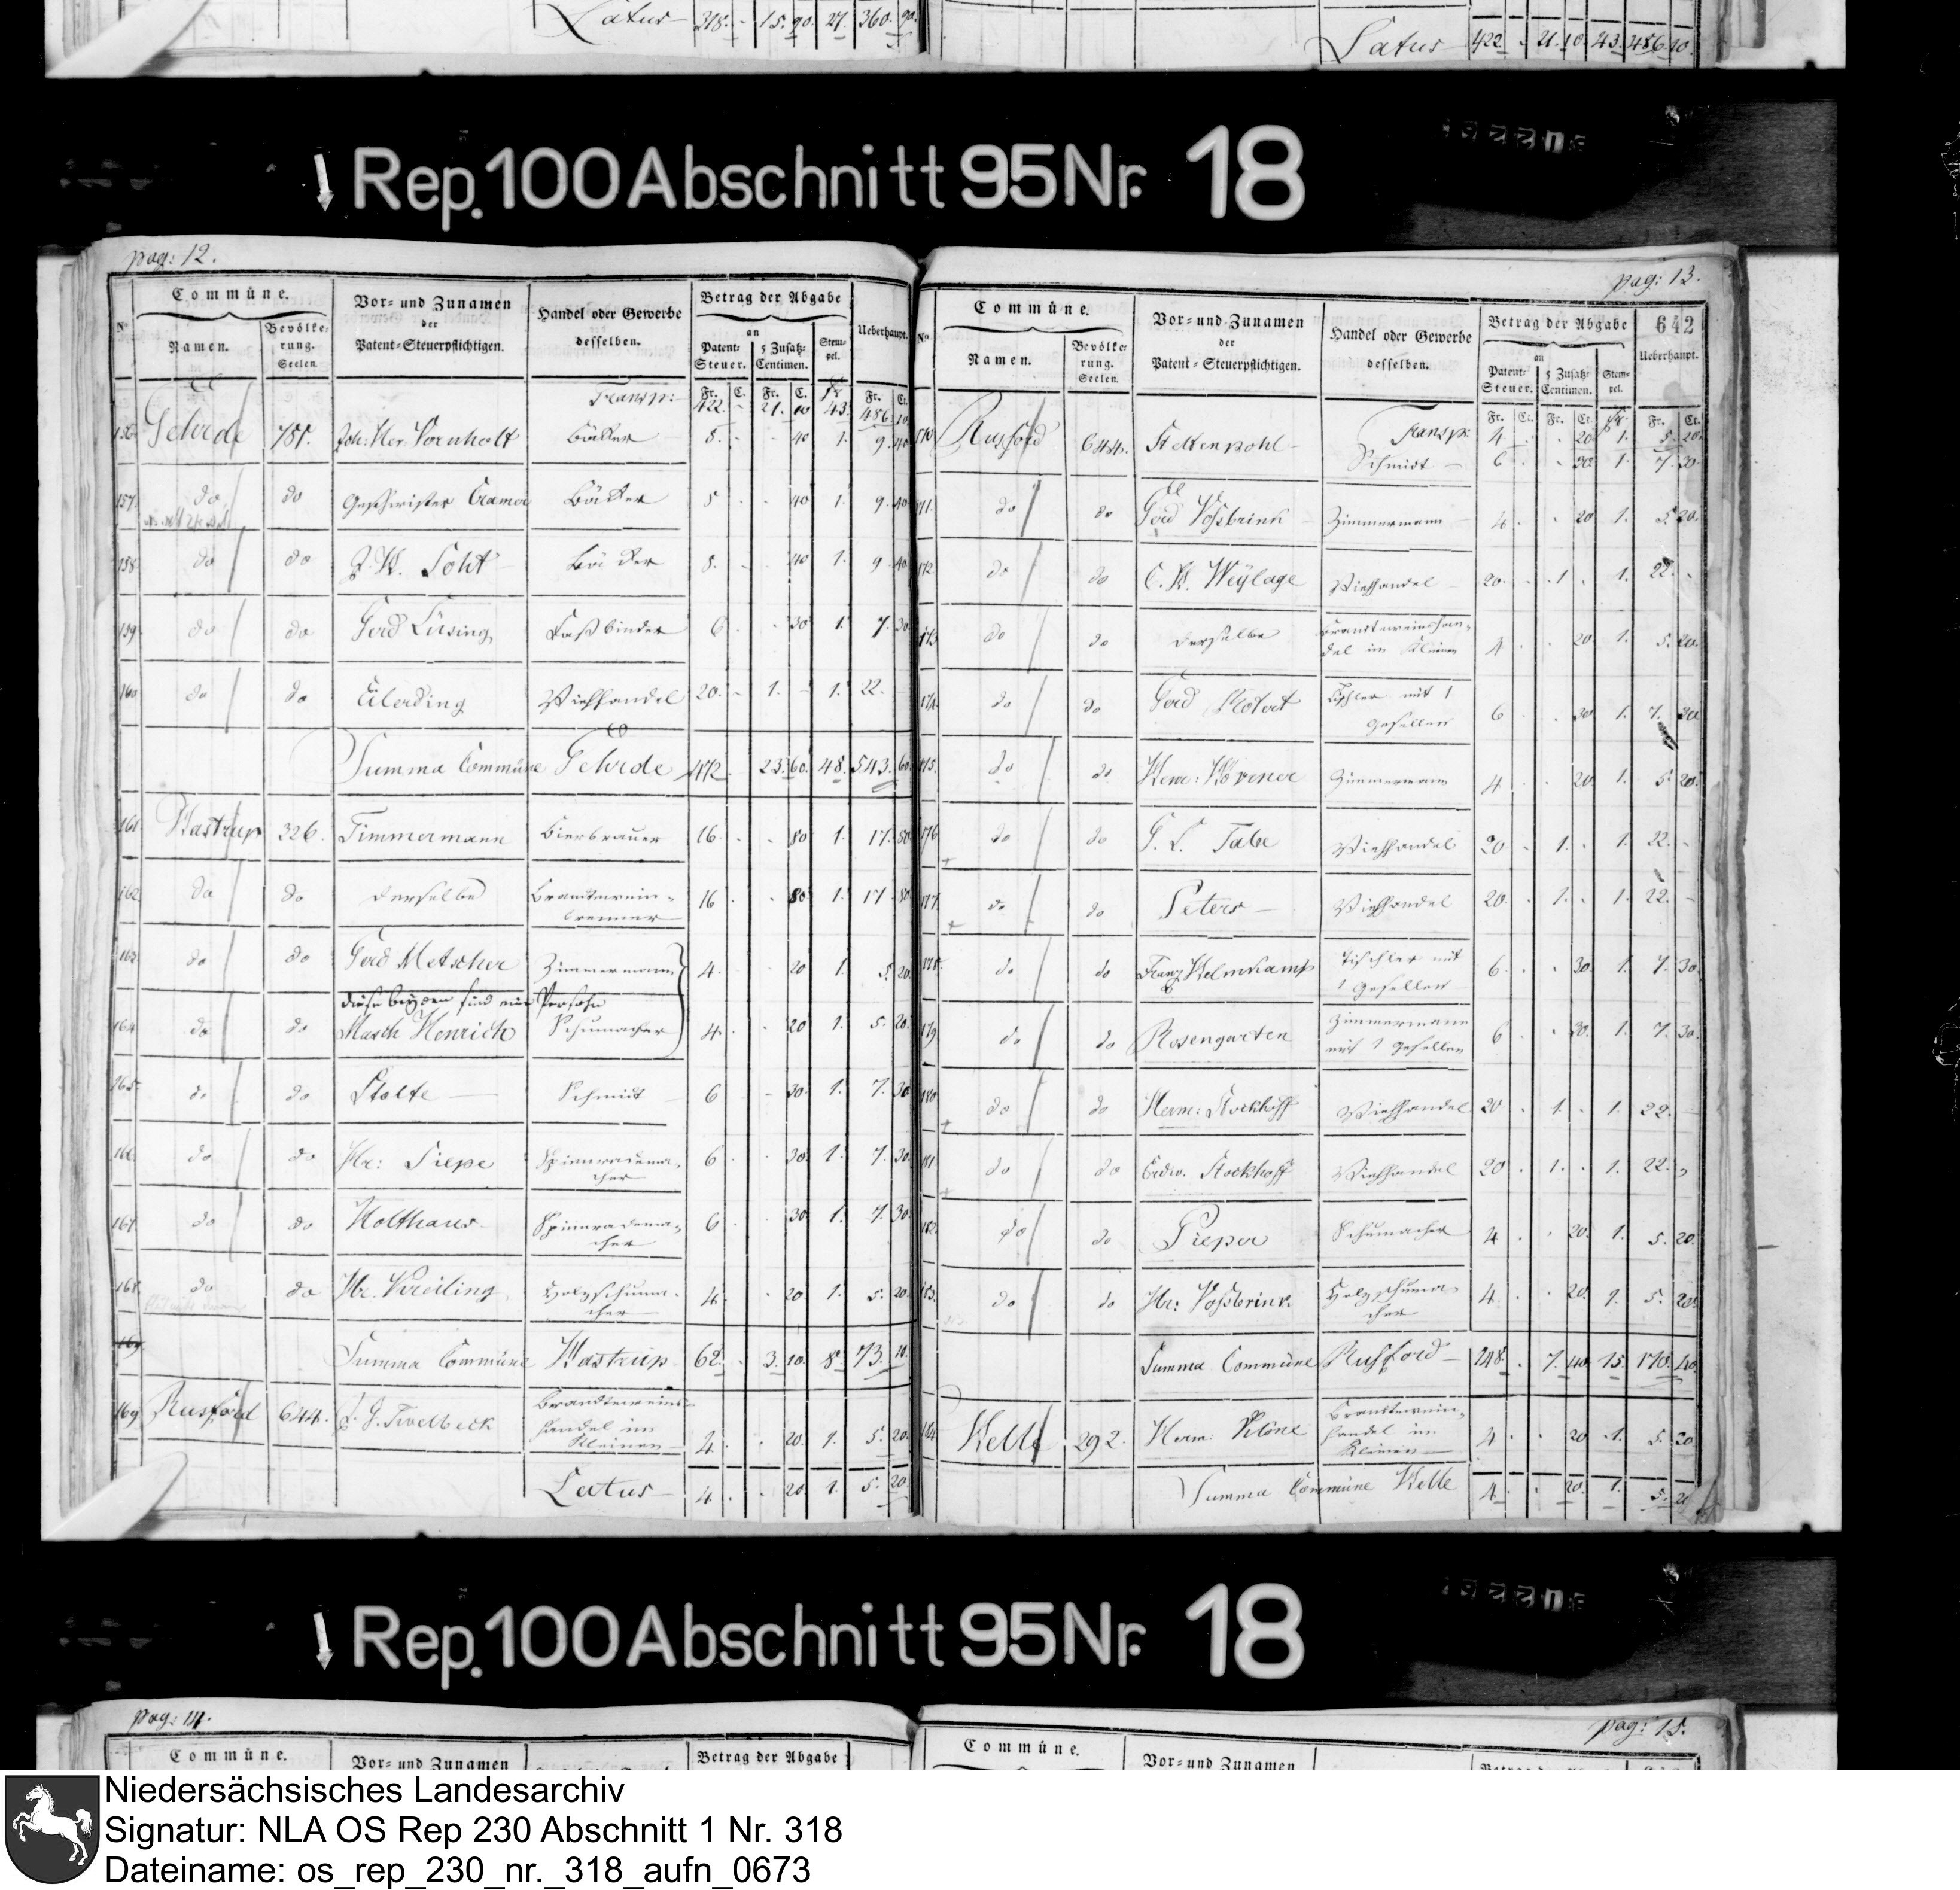 Latus 318. - 15. 90. 27. 360. 90.
Latus 422. - 21. 10. 43. 486. 10.
Rep. 100 Abschnitt 95 Nr. 18
pag: 12.
No. Commüne. Vor- und Zunamen der Patent-Steuerpflichtigen. Handel oder Gewerbe desselben. Betrag der Abgabe Ueberhaupt.
Namen. Bevölkerung. Seelen. an Patent-Steuer. 5 Zusatz-Centimen. Stempel.
Fr. C. Fr. C. fr Fr. Ct.
Transp: 422. - 21. 10 43. 486. 10
156. Gehrde 781. Joh: Her. Vornholt Bäcker 8. - - 40 1. 9. 40
157. do do Geschwister Cramer Bäcker 8 - - 40 1. 9. 40
158. do do J. H. Poht Bäcker 8. - - 40 1. 9. 40
159. do do Gerd Lüsing Faßbinder 6 - - 30 1. 7. 30
160. do do Eilerding Viehhandel 20. - 1. - 1. 22.
Summa Commüne Gehrde 472 23. 60. 48. 543. 60
161. Hastrup 326. Timmermann Bierbrauer 16. - - 80 1. 17. 80
162. do do derselbe Brandtwein-
brenner 16 - - 80 1. 17. 80
163. do do Gerd Metscher Zimmermann 4. 20 1. 5. 20
diese beyden sind eine Persohn
164. do do Masch Henrich Schumacher 4. 20 1. 5. 20
165. do do Stolte Schmidt 6 - - 30. 1. 7. 30
166. do do Hr: Piepe Spinnradema-
cher 6 30. 1. 7. 30
167. do do Holthaus Spinnradema-
cher 6 30. 1. 7. 30
168. do do Hr. Kreiling Holzschuma-
cher 4. 20 1. 5. 20
169
Summa Commüne Hastrup 62. - 3. 10. 8. 73. 10.
169 Rusford 644. J. G. Twelbeck Brandtweins-
handel im
Kleinen 4. 20. 1. 5. 20
Latus 4. 20. 1. 5. 20
pag: 13.
642
No. Commüne. Vor- und Zunamen der Patent-Steuerpflichtigen. Handel oder Gewerbe desselben. Betrag der Abgabe Ueberhaupt.
Namen. Bevölkerung. Seelen. an Patent-Steuer. 5 Zusatz-Centimen. Stempel.
Fr. Ct. Fr. Ct. fr. Fr. Ct.
Transp: 4 20 1. 5. 20
170 Rusford 644. Steltenpohl Schmidt 6 30. 1. 7. 30
171. do do Gerd Voßbrink Zimmermann 4. 20 1. 5. 20.
172. do do C. H. Weÿlage Viehhandel 20. - 1. 1. 22. -
173. do do derselbe Brantweinshan-
del im Kleinen 4 20 1. 5. 20.
174. do do Gerd Plötert Tischler mit 1
Gesellen 6 30 1. 7. 30
175. do do Herm: Hövener Zimmermann 4 20 1. 5. 20.
176. do do G. L. Tabe Viehhandel 20 - 1. 1. 22. -
177. do do Peters Viehhandel 20. 1. 1. 22. -
178. do do Franz Helmkamp Tischler mit
1 Gesellen 6. 30. 1. 7. 30
179 do do Rosengarten Zimmermann
mit 1 Gesellen 6 30. 1. 7. 30.
180 do do Herm: Stockhoff Viehhandel 20 - 1. 1. 22.
181 do do Erdw. Stockhoff Viehhandel 20 1. 1. 22.
182. do do Pieper Schumacher 4 20. 1. 5. 20.
183. do do Hr: Voßbrink Holzschuma-
cher 4. 20. 1. 5. 20
Summa Commüne Rusford 148. 7. 40. 15. 170. 40.
184. Helle 292. Herm: Klöne Brandtwein-
handel im
Kleinen 4 20 1. 5. 20
Summa Commüne Helle 4. 20. 1. 5. 20
Rep. 100 Abschnitt 95 Nr. 18
pag: 14.
Commüne. Vor- und Zunamen Betrag der Abgabe
pag: 15.
Commüne. Vor- und Zunamen
Niedersächsisches Landesarchiv
Signatur: NLA OS Rep 230 Abschnitt 1 Nr. 318
Dateiname: os_rep_230_nr._318_aufn_0673